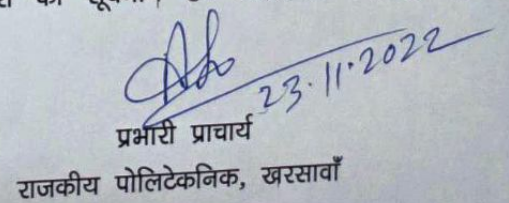 की सूचना
23.11.2022
प्रभारी प्राचार्य
राजकीय पोलिटेकनिक, खरसावाँ